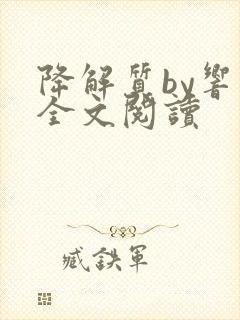 降解质by響
全文閱讀
臧鉄軍